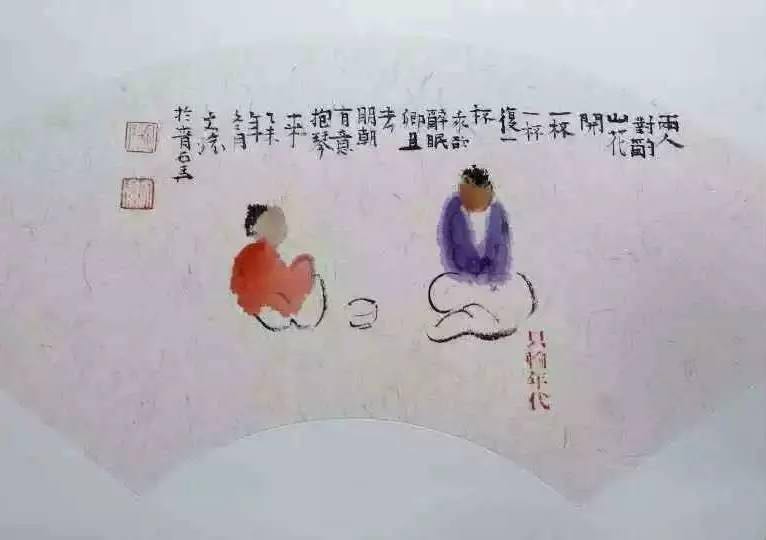 兩人
對酌
山花
開
一杯
一杯
復一
杯
我欲
醉眠
卿且
去
明朝
有意
抱琴
來
乙未
年
冬月
於青
年代